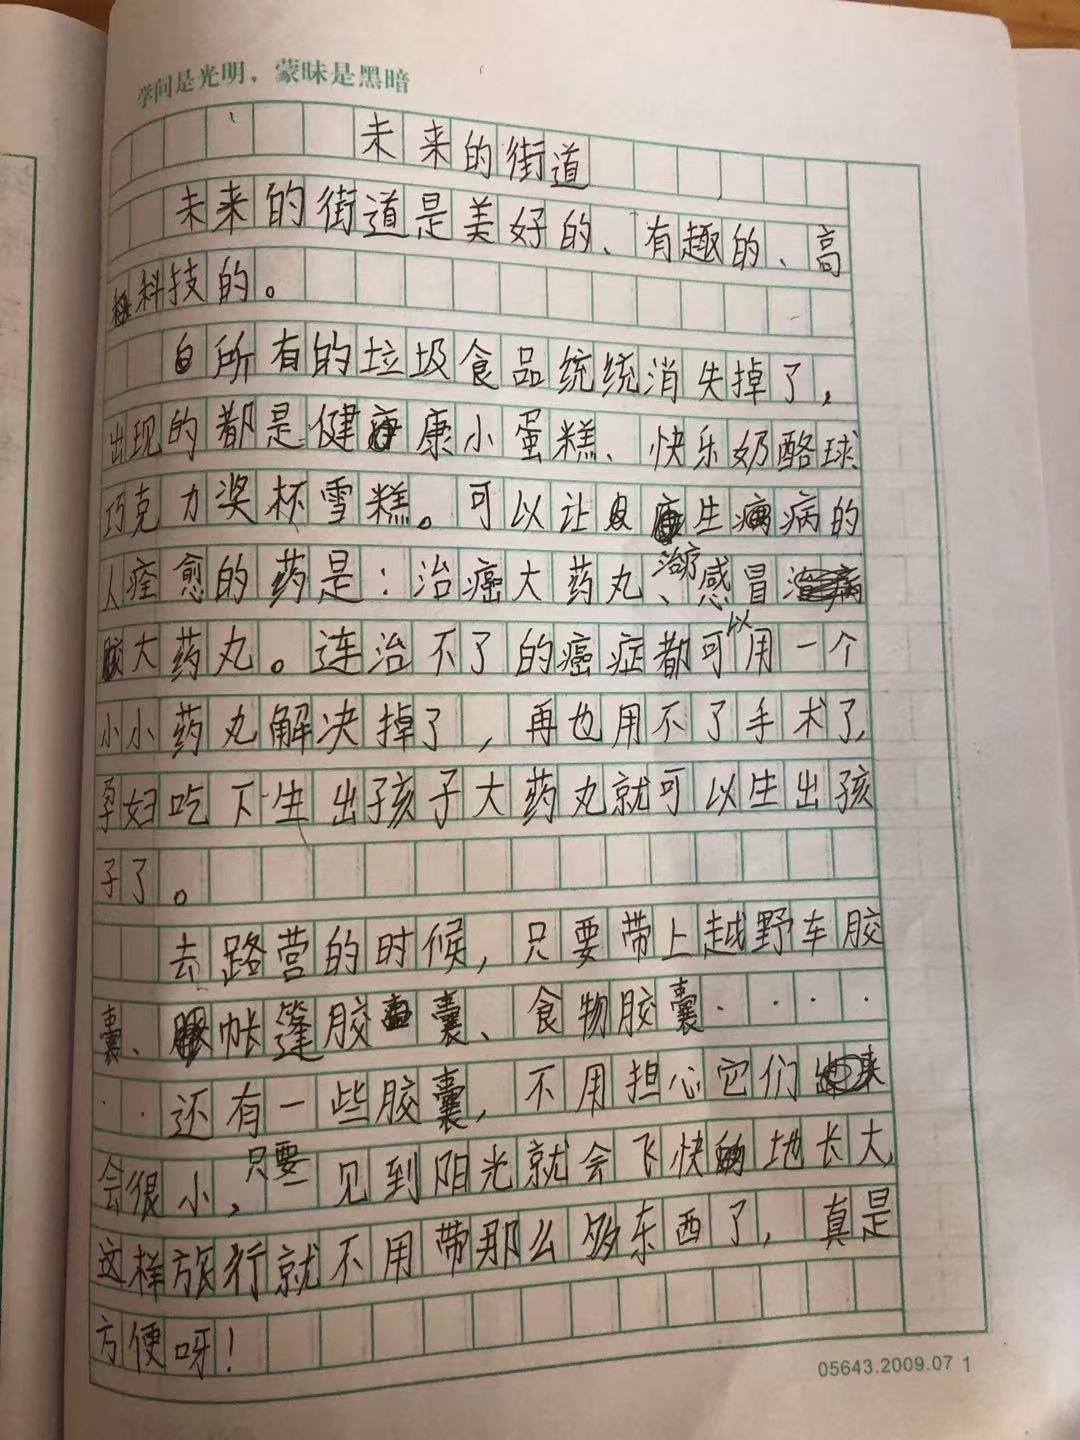 学问是光明，蒙昧是黑暗
未来的街道
未来的街道是美好的、有趣的、高
科技的。
所有的垃圾食品统统消失掉了，
出现的都是健康小蛋糕、快乐奶酪球
巧克力奖杯雪糕。可以让生病的
人痊愈的药是：治癌大药丸、治疗感冒
大药丸。连治不了的癌症都可以用一个
小小药丸解决掉了，再也用不了手术了，
孕妇吃下生出孩子大药丸就可以生出孩
子了。
去路营的时候，只要带上越野车胶
囊、帐篷胶囊、食物胶囊····
··还有一些胶囊，不用担心它们
会很小，只要见到阳光就会飞快地长大，
这样旅行就不用带那么多东西了，真是
方便呀！
05643.2009.07 1